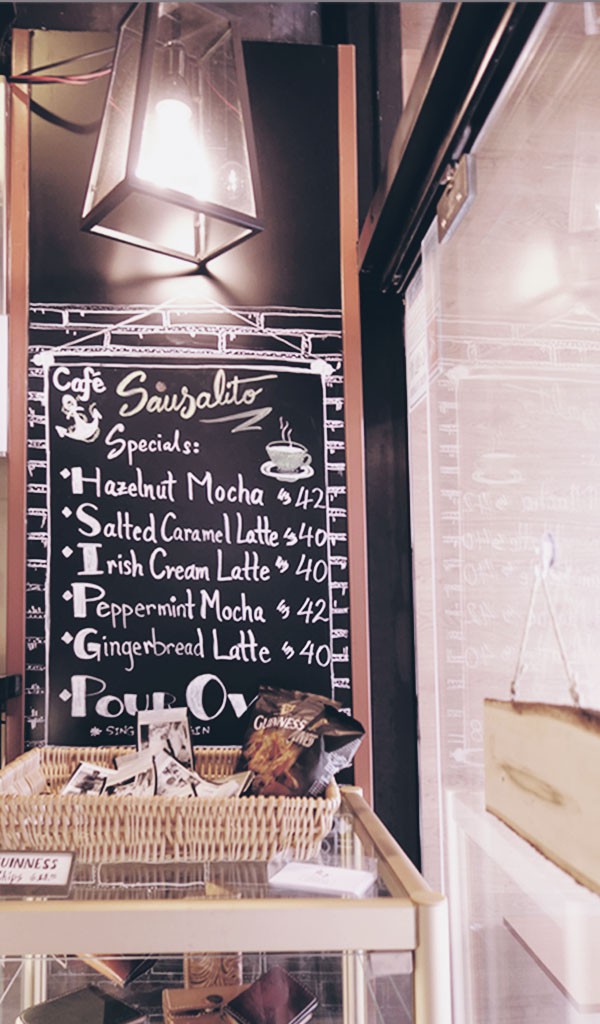 Café
Sausalito
Specials:
Hazelnut Mocha $42
Salted Caramel Latte $40
Irish Cream Latte $40
Peppermint Mocha $42
Gingerbread Latte $40
Pour Ov
GUINNESS
GUINNESS
Chips